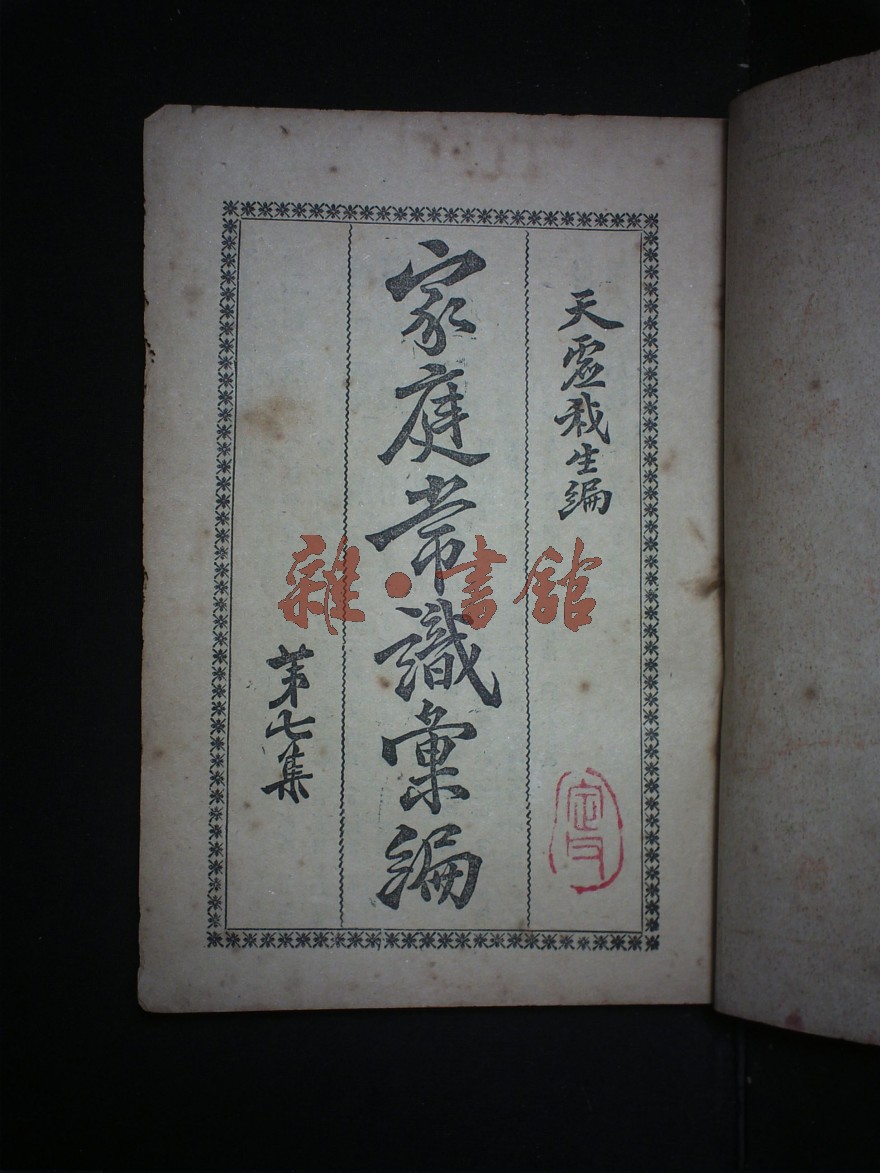 天虛我生編
家庭常識彙編
第七集
雜·書館